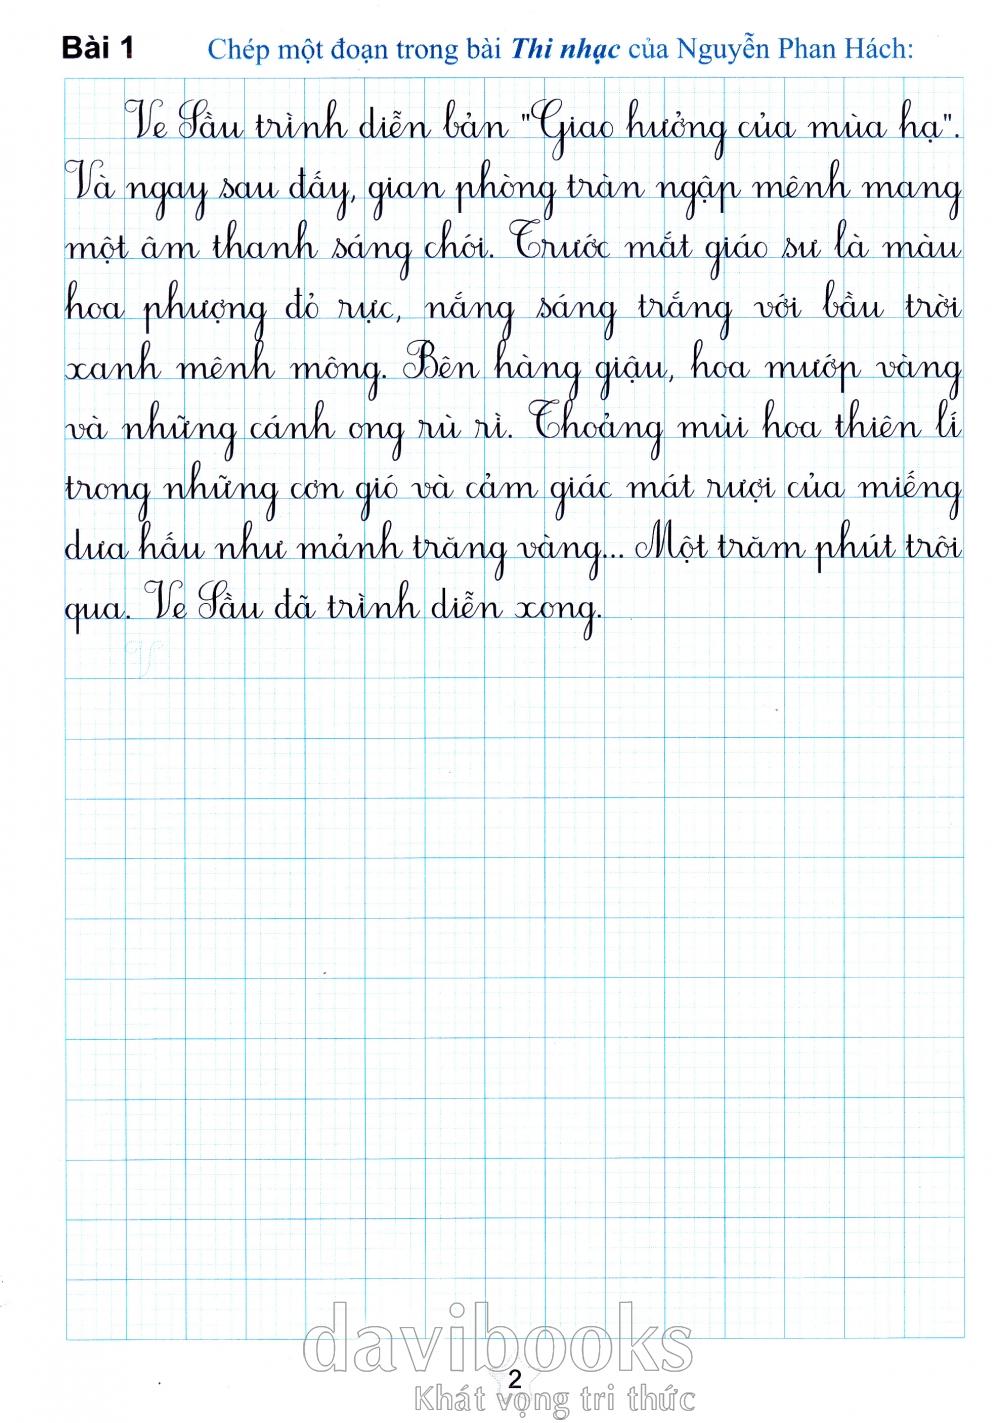 Bài 1 Chép một đoạn trong bài Thi nhạc của Nguyễn Phan Hách:
Ve Sầu trình diễn bản "Giao hưởng của mùa hạ".
Và ngay sau đấy, gian phòng tràn ngập mênh mang
một âm thanh sáng chói. Trước mắt giáo sư là màu
hoa phượng đỏ rực, nắng sáng trắng với bầu trời
xanh mênh mông. Bên hàng giậu, hoa mướp vàng
và những cánh ong rù rì. Thoảng mùi hoa thiên lí
trong những cơn gió và cảm giác mát rượi của miếng
dưa hấu như mảnh trăng vàng... Một trăm phút trôi
qua. Ve Sầu đã trình diễn xong.
V
davibooks
2
Khát vọng tri thức